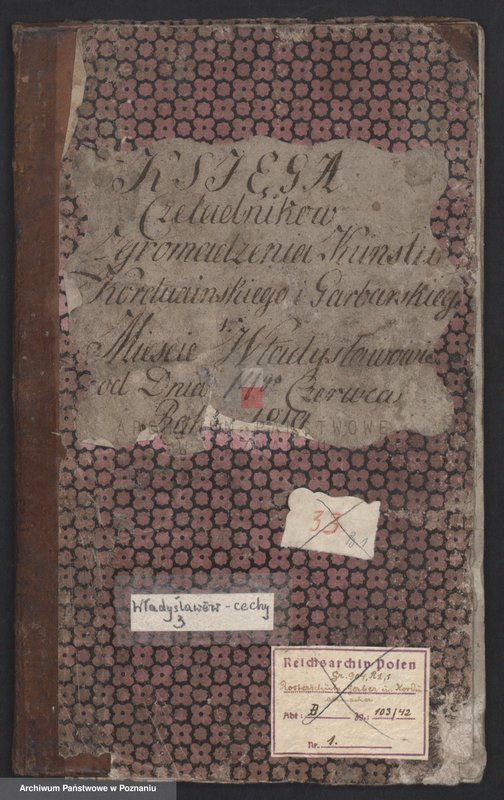 KSIĘGA
Czeladników
Zgromadzenia Kunsztu
Korduańskiego i Garbarskiego
w Mieście Władysławowie
od Dnia Czerwca
Roku 1819
ARCHIWUM PAŃSTWOWE
33
B 1
Władysławów - cechy
3
Reichsarchiv Posen
Gr. 901, R1, 1
Abt: B Zg.: 103/42
Nr. 1.
Archiwum Państwowe w Poznaniu